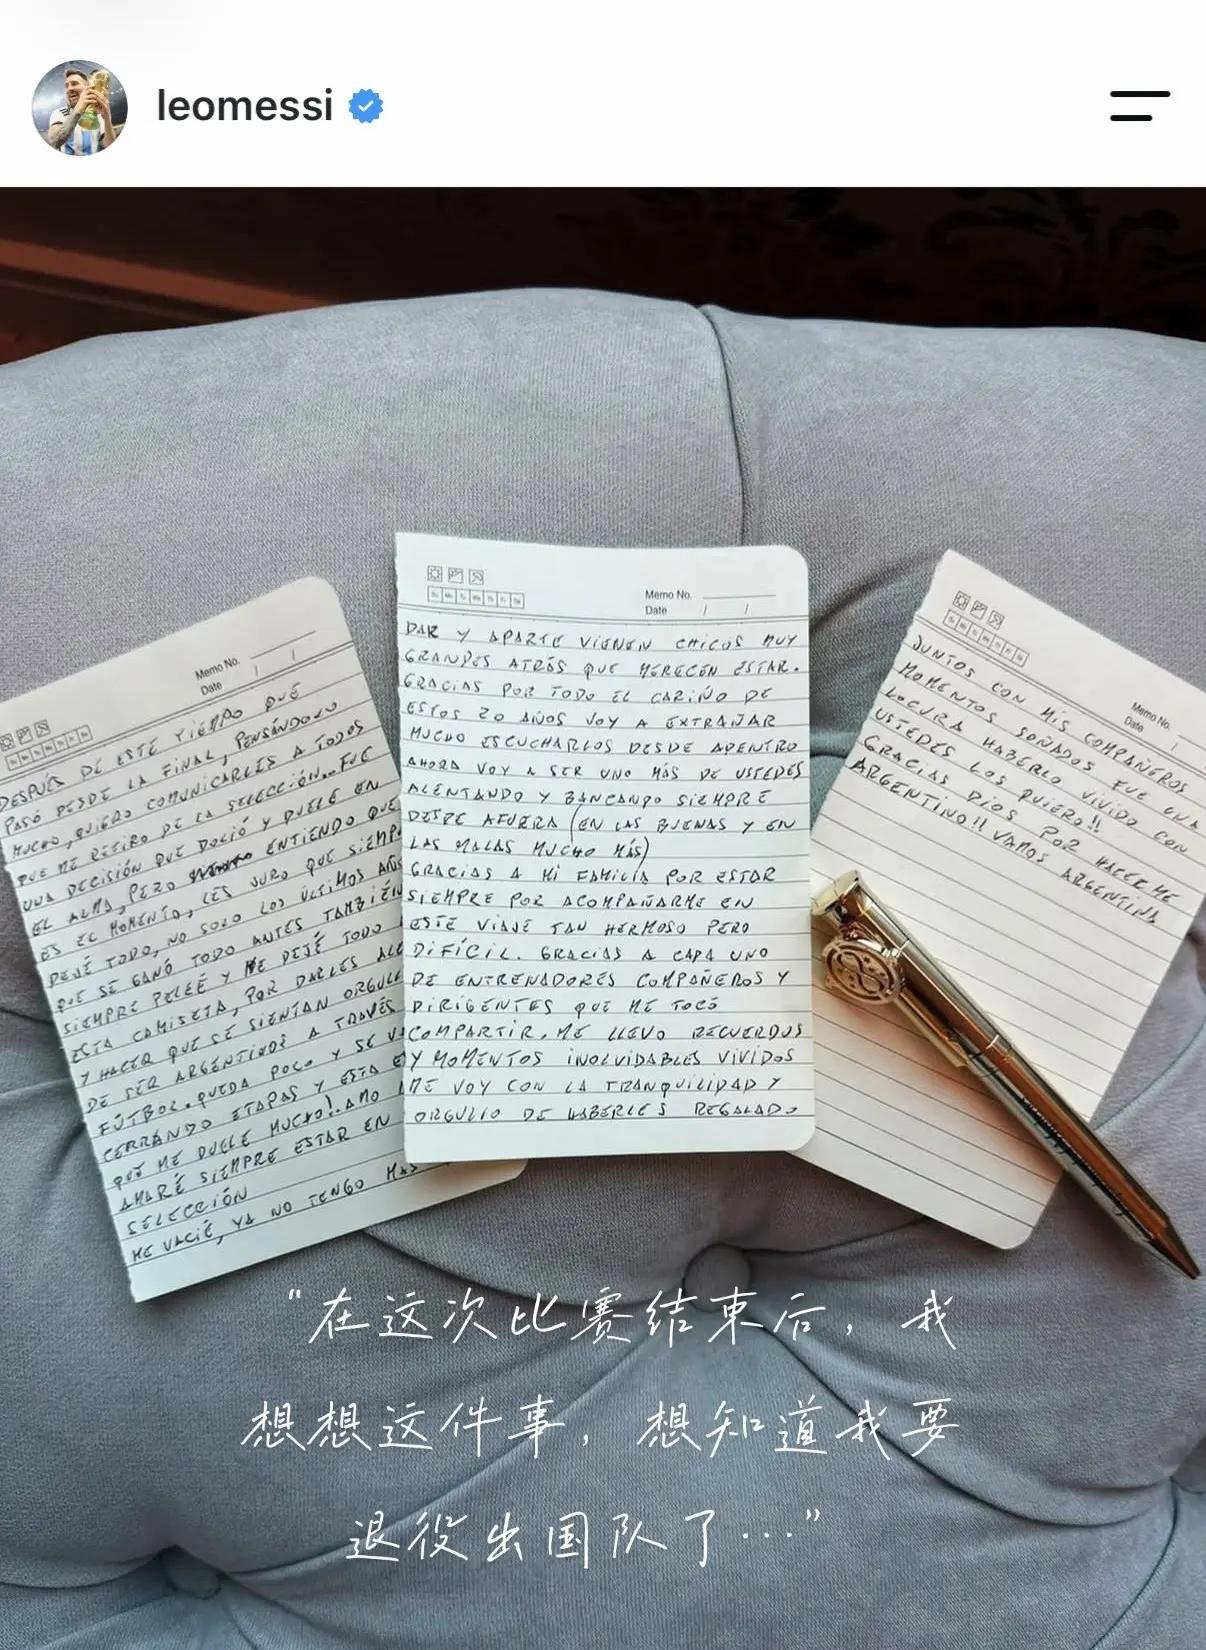 leomessi
Memo No.
Date / /
DESPUÉS DE ESTE TIEMPO QUE
PASÓ DESDE LA FINAL, PENSÁNDOLO
MUCHO, QUIERO COMUNICARLES A TODOS
QUE ME RETIRO DE LA SELECCIÓN... FUE
UNA DECISIÓN QUE DOLIÓ Y DUELE EN
EL ALMA, PERO ENTIENDO QUE
ES EL MOMENTO, LES JURO QUE SIEMP
DEJÉ TODO, NO SOLO LOS ÚLTIMOS AÑOS
QUE SE GANÓ TODO ANTES TAMBIÉN
SIEMPRE PELEÉ Y ME DEJÉ TODO
ESTA CAMISETA, POR DARLES ALE
Y HACER QUE SE SIENTAN ORGULL
DE SER ARGENTINOS A TRAVÉS
FÚTBOL. QUEDA POCO Y SE V
CERRANDO ETAPAS Y ESTA E
QUE ME DUELE MUCHO!. AMO
AMARÉ SIEMPRE ESTAR EN
SELECCIÓN
ME VACIÉ, YA NO TENGO MÁS
Memo No.
Date / /
DAR Y APARTE VIENEN CHICOS MUY
GRANDES ATRÁS QUE MERECEN ESTAR.
GRACIAS POR TODO EL CARIÑO DE
ESTOS 20 AÑOS VOY A EXTRAÑAR
MUCHO ESCUCHARLOS DESDE ADENTRO
AHORA VOY A SER UNO MÁS DE USTEDES
ALENTANDO Y BANCANDO SIEMPRE
DESDE AFUERA (EN LAS BUENAS Y EN
LAS MALAS MUCHO MÁS)
GRACIAS A MI FAMILIA POR ESTAR
SIEMPRE POR ACOMPAÑARME EN
ESTE VIAJE TAN HERMOSO PERO
DIFÍCIL. GRACIAS A CADA UNO
DE ENTRENADORES COMPAÑEROS Y
DIRIGENTES QUE ME TOCÓ
COMPARTIR. ME LLEVO RECUERDOS
Y MOMENTOS INOLVIDABLES VIVIDOS
ME VOY CON LA TRANQUILIDAD Y
ORGULLO DE HABERLES REGALADO
Memo No.
Date /
JUNTOS CON MIS COMPAÑEROS
MOMENTOS SOÑADOS FUE UNA
LOCURA HABERLO VIVIDO CON
USTEDES LOS QUIERO!!
GRACIAS DIOS POR HACERME
ARGENTINO!! VAMOS ARGENTINA
"在这次比赛结束后，我
想想这件事，想知道我要
退役出国队了…"